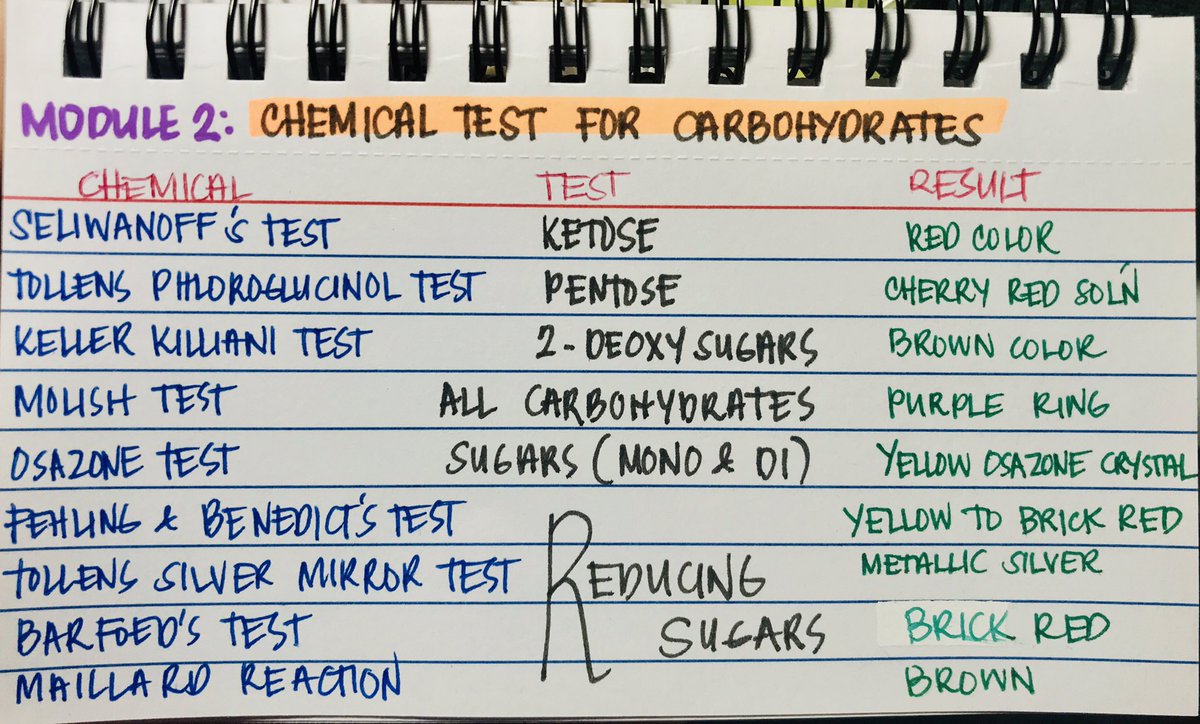 MODULE 2: CHEMICAL TEST FOR CARBOHYDRATES
CHEMICAL TEST RESULT
SELIWANOFF'S TEST KETOSE RED COLOR
TOLLENS PHLOROGLUCINOL TEST PENTOSE CHERRY RED SOL'N
KELLER KILLIANI TEST 2-DEOXY SUGARS BROWN COLOR
MOLISH TEST ALL CARBOHYDRATES PURPLE RING
OSAZONE TEST SUGARS (MONO & DI) YELLOW OSAZONE CRYSTAL
FEHLING & BENEDICT'S TEST YELLOW TO BRICK RED
TOLLENS SILVER MIRROR TEST REDUCING METALLIC SILVER
BARFOED'S TEST SUGARS BRICK RED
MAILLARD REACTION BROWN